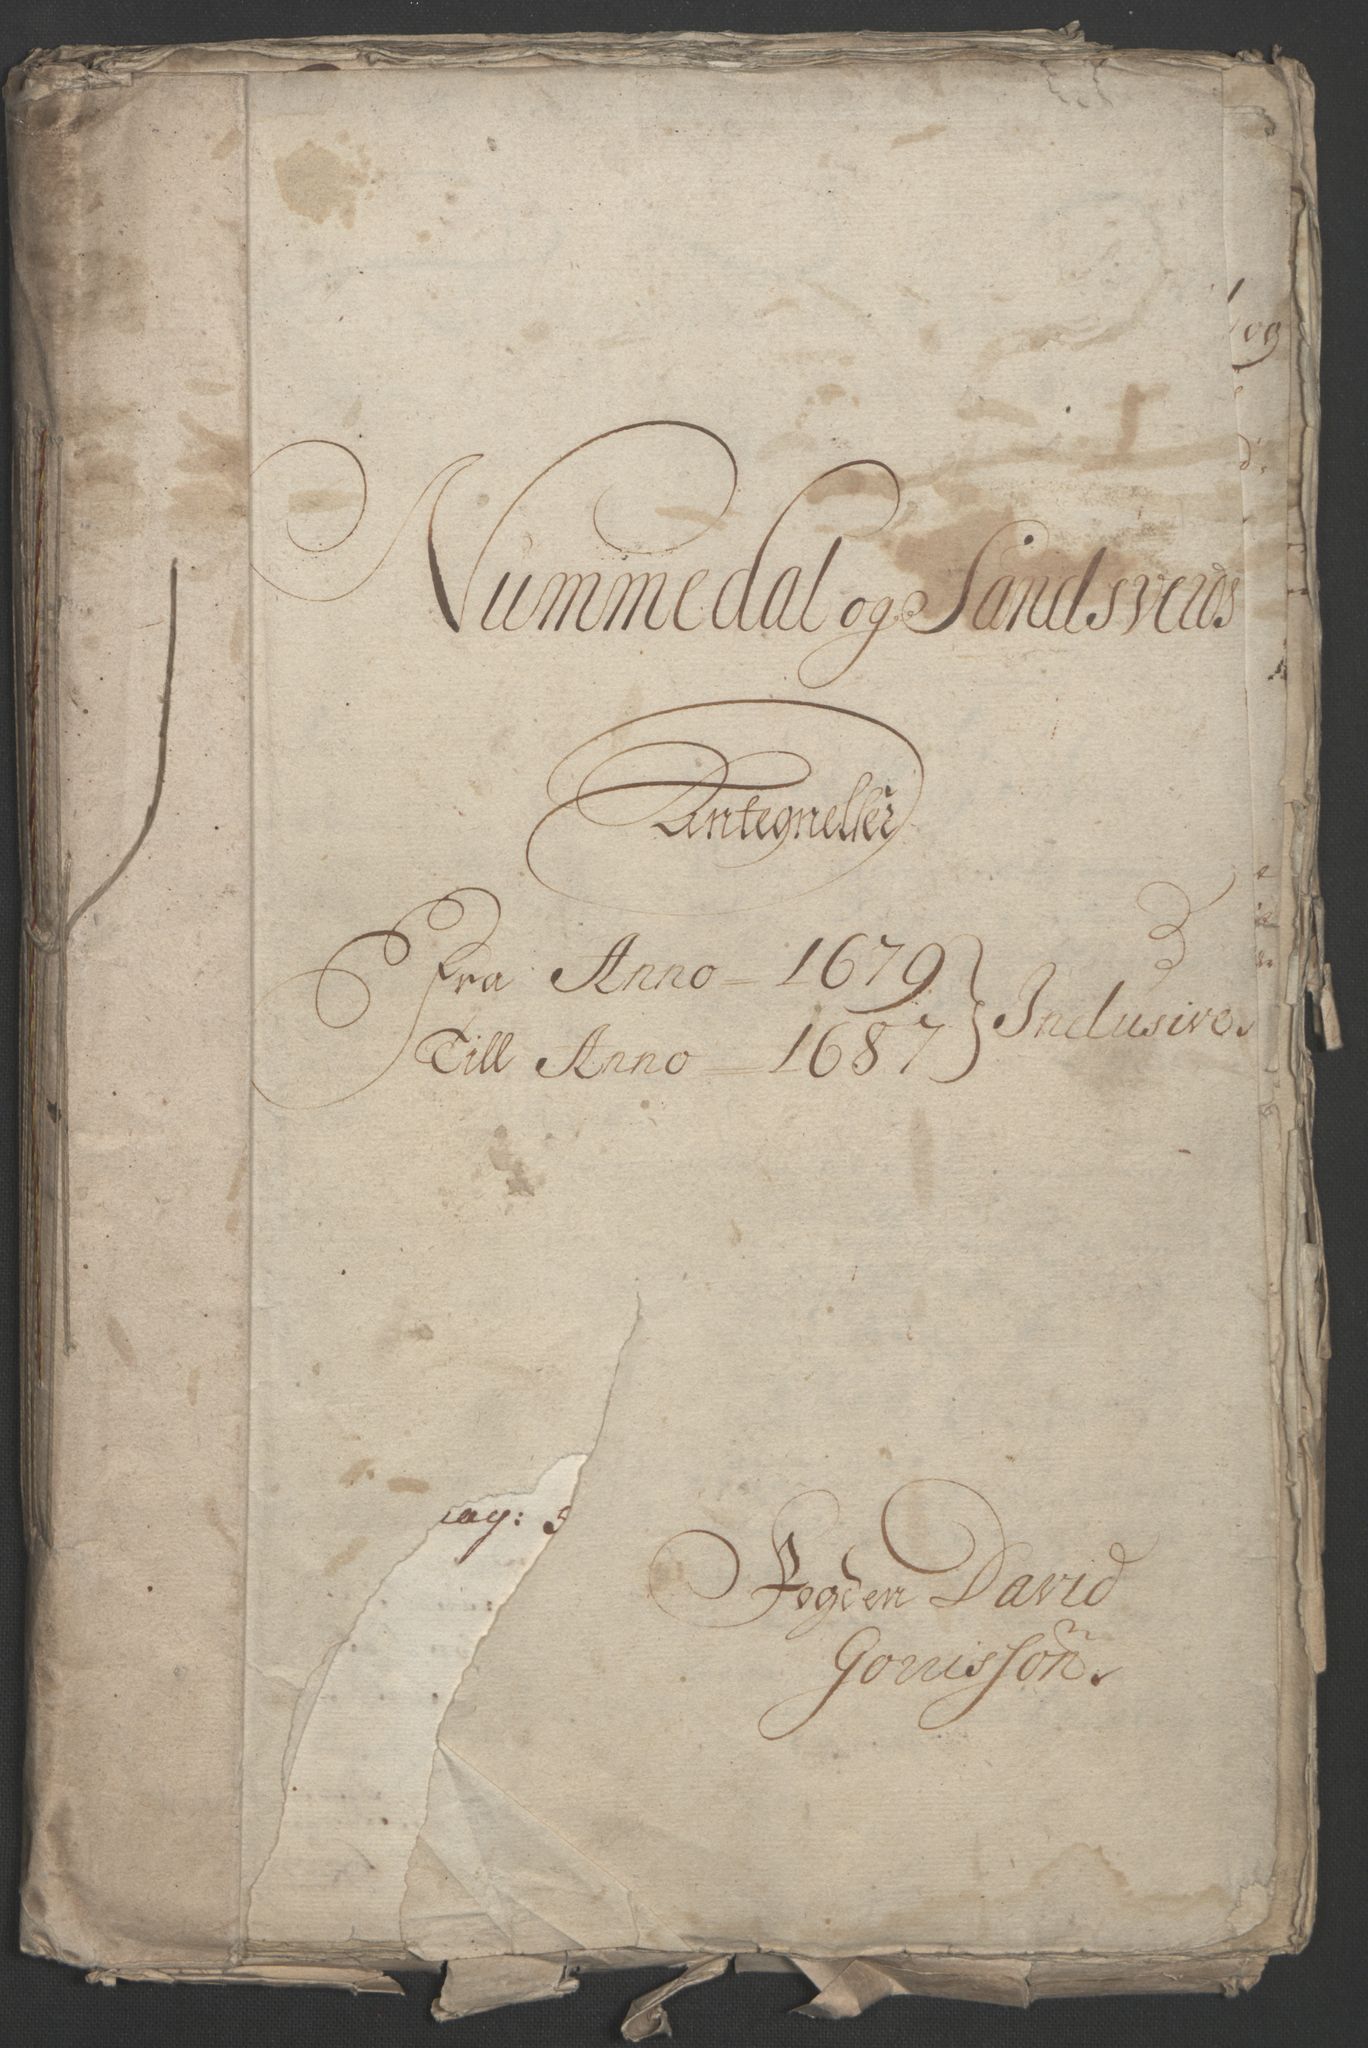 Nummedal og Sandsverds
Antegnelser
Fra Anno - 1679
Till Anno - 1687 } Inclusive.
Fogden David
Gonissøn.
og